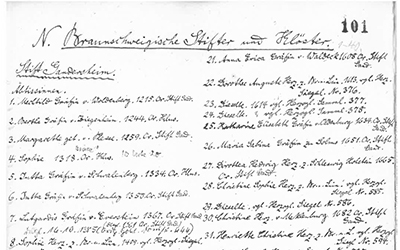 101
N. Braunschweigische Stifter und Klöster.
Stift Gandersheim.
Äbtissinnen.
1. Mechtild Gräfin v. Woldenberg, 1215. Or. Stift Gand.
2. Bertha Gräfin v. Ziegenhain 1244. Or. Hans.
3. Margarethe gel. v. Plesse. 1259. Or. Stift Gand.
4. Sophie 1313. Or. Hans.
5. Jutta Gräfin v. Schwalenberg, 1334. Or. Hans.
6. Jutta Gräfin v. Schwalenberg 1353. Or. Stift Gand.
7. Lutgardis Gräfin v. Everstein 1367. Or. Stift Gand.
8. Sophie Herz. z. Br. u. Lün. 1409. vgl. Herzgl. Siegel
21. Anna Erica Gräfin v. Waldeck 1608 Or. Stift Gand.
22. Dorothee Auguste Herz. z. Br. u. Lün. 1613. vgl. Herz. Siegel Nr. 376.
23. Dieselbe. 1614 vgl. Herzogl. Samml. 377.
24. Dieselbe. vgl. Herzogl. Samml. 378.
25. Katharina Elisabeth Gräfin v. Oldenburg 1644. Or. Stift Gand.
26. Maria Sabina Gräfin zu Solms 1651. Or. Stift Gand.
27. Dorothea Hedwig Herz. zu Schleswig Holstein 1665. Or. Stift Gand.
28. Christine Sophie Herz. z. Br. u. Lün. vgl. Herzgl. Siegel Nr. 585.
29. Dieselbe. vgl. Herzogl. Siegel Nr. 586.
30. Christine Herz. v. Mecklenburg 1682 Or. Stift Gand.
31. Henriette Christine Herz. z. Br. u. Lün. vgl. Herzogl. Siegel Nr. 594.